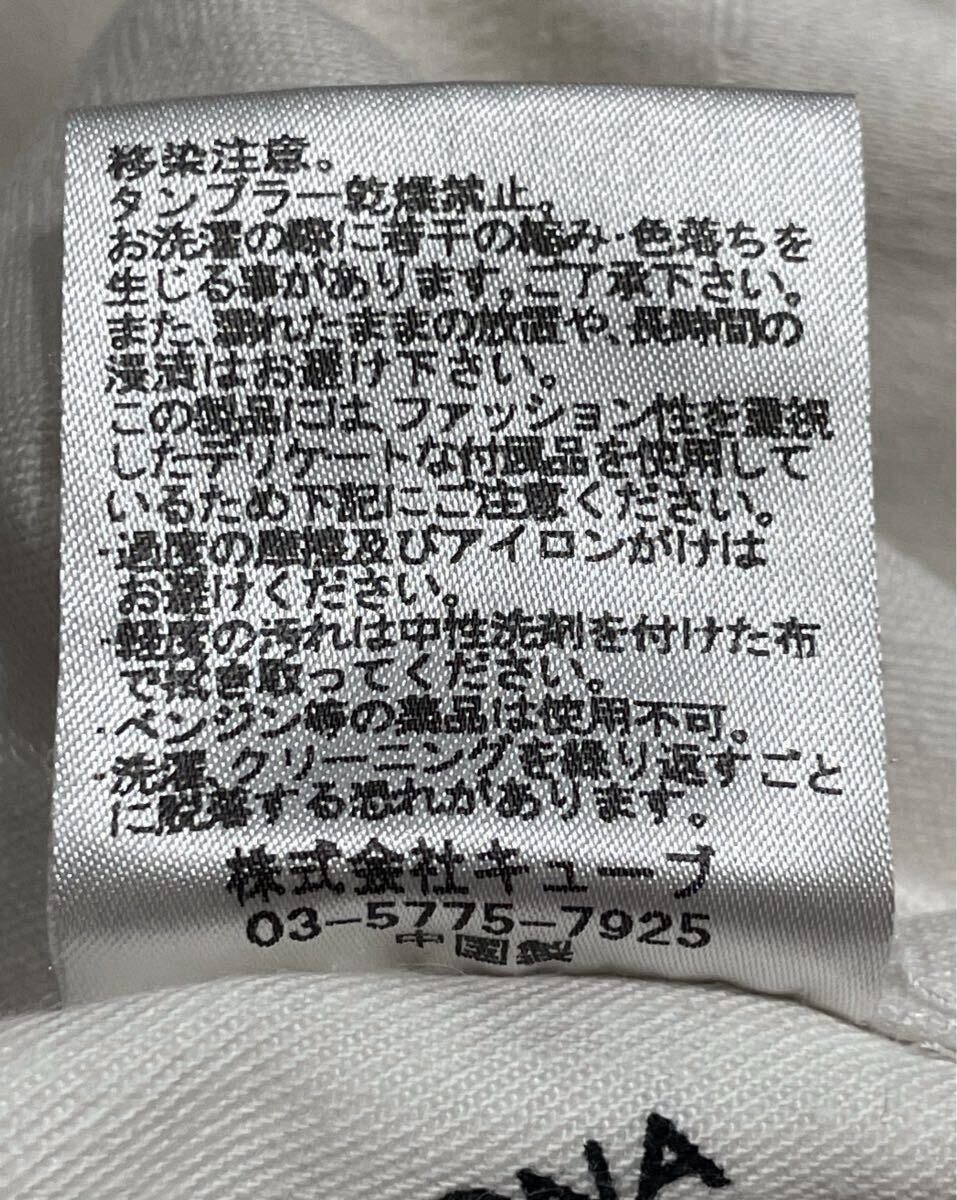 移染注意。
タンブラー乾燥禁止。
お洗濯の際に若干の縮み・色落ちを
生じる事があります。ご了承下さい。
また、濡れたままの放置や、長時間の
浸漬はお避け下さい。
この製品には、ファッション性を重視
したデリケートな付属品を使用して
いるため下記にご注意ください。
・過度の摩擦及びアイロンがけは
お避けください。
・軽度の汚れは中性洗剤を付けた布
で拭き取ってください。
・ベンジン等の薬品は使用不可。
・洗濯、クリーニングを繰り返すごと
に脱落する恐れがあります。
株式会社キューブ
03-5775-7925
中国製